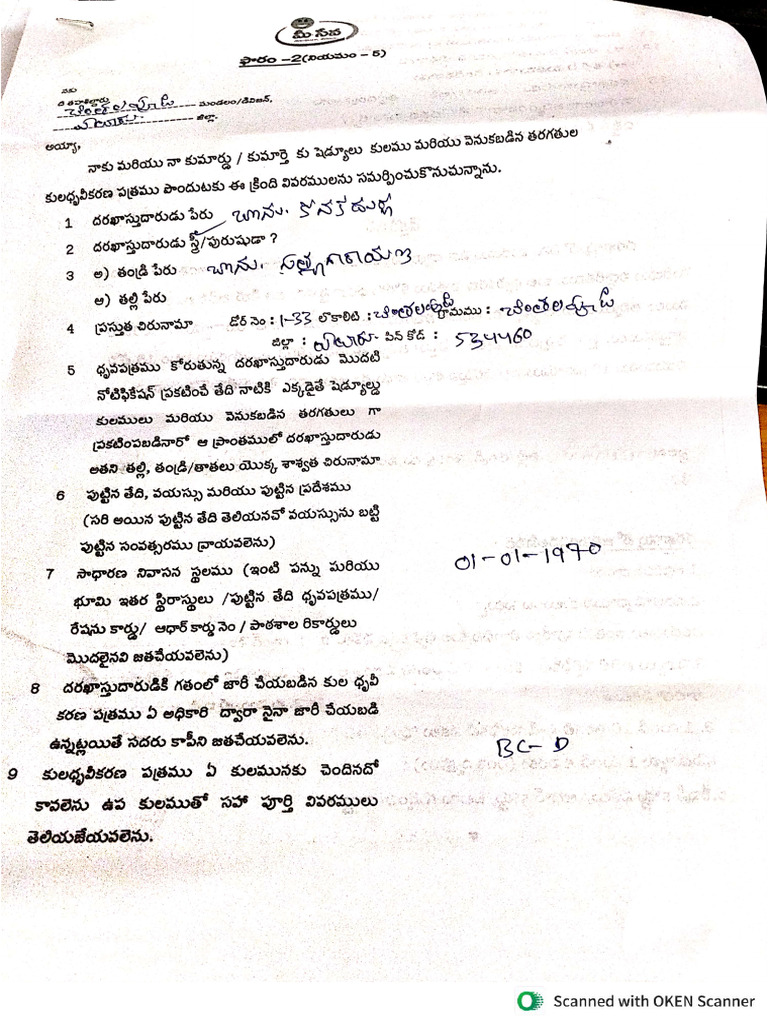 మీ సేవ
ఫారం -2(నియమం - 5)
నకు
ది తహశీల్దారు
చింతలపూడి మండలం/డివిజన్,
ఏలూరు జిల్లా.
అయ్యా,
నాకు మరియు నా కుమార్డు / కుమార్తె కు షెడ్యూలు కులము మరియు వెనుకబడిన తరగతుల
కులధృవీకరణ పత్రము పొందుటకు ఈ క్రింది వివరములను సమర్పించుకొనుచన్నాను.
1 దరఖాస్తుదారుడు పేరు బాను. కనకదుర్గ
2 దరఖాస్తుదారుడు స్త్రీ/పురుషుడా ?
3 అ) తండ్రి పేరు బాను. సత్యనారాయణ
ఆ) తల్లి పేరు
4 ప్రస్తుత చిరునామా డోర్ నెం : 1-33 లొకాలిటి : చింతలపూడి గ్రామము : చింతలపూడి
జిల్లా : ఏలూరు పిన్ కోడ్ : 534460
5 ధృవపత్రము కోరుతున్న దరఖాస్తుదారుడు మొదటి
నోటిఫికేషన్ ప్రకటించే తేది నాటికి ఎక్కడైతే షెడ్యూల్డు
కులములు మరియు వెనుకబడిన తరగతులు గా
ప్రకటింపబడినారో ఆ ప్రాంతములో దరఖాస్తుదారుడు
అతని తల్లి, తండ్రి/తాతలు యొక్క శాశ్వత చిరునామా
6 పుట్టిన తేది, వయస్సు మరియు పుట్టిన ప్రదేశము
(సరి అయిన పుట్టిన తేది తెలియనచో వయస్సును బట్టి
పుట్టిన సంవత్సరము వ్రాయవలెను)
01-01-1970
7 సాధారణ నివాసన స్థలము (ఇంటి పన్ను మరియు
భూమి ఇతర స్థిరాస్థులు /పుట్టిన తేది ధృవపత్రము/
రేషను కార్డు/ ఆధార్ కార్డు నెం / పాఠశాల రికార్డులు
మొదలైనవి జతచేయవలెను)
8 దరఖాస్తుదారుడికి గతంలో జారీ చేయబడిన కుల ధృవీ
కరణ పత్రము ఏ అధికారి ద్వారా నైనా జారీ చేయబడి
ఉన్నట్లయితే సదరు కాపీని జతచేయవలెను.
BC-D
9 కులధృవీకరణ పత్రము ఏ కులమునకు చెందినదో
కావలెను ఉప కులముతో సహా పూర్తి వివరములు
తెలియజేయవలెను.
Scanned with OKEN Scanner